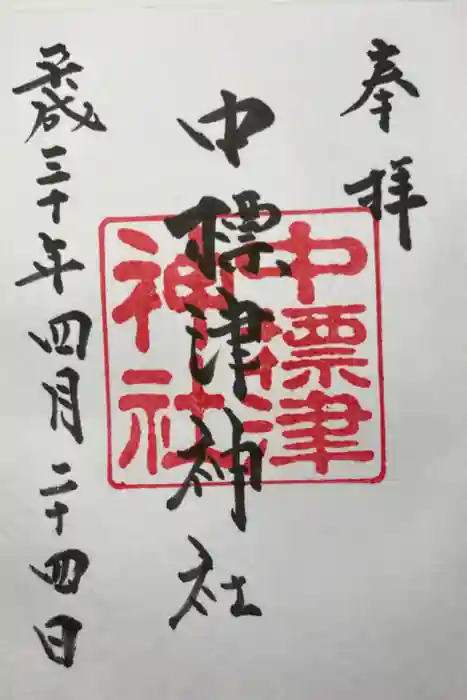 奉拝
中標津神社
中標津
神社
平成三十年四月二十四日